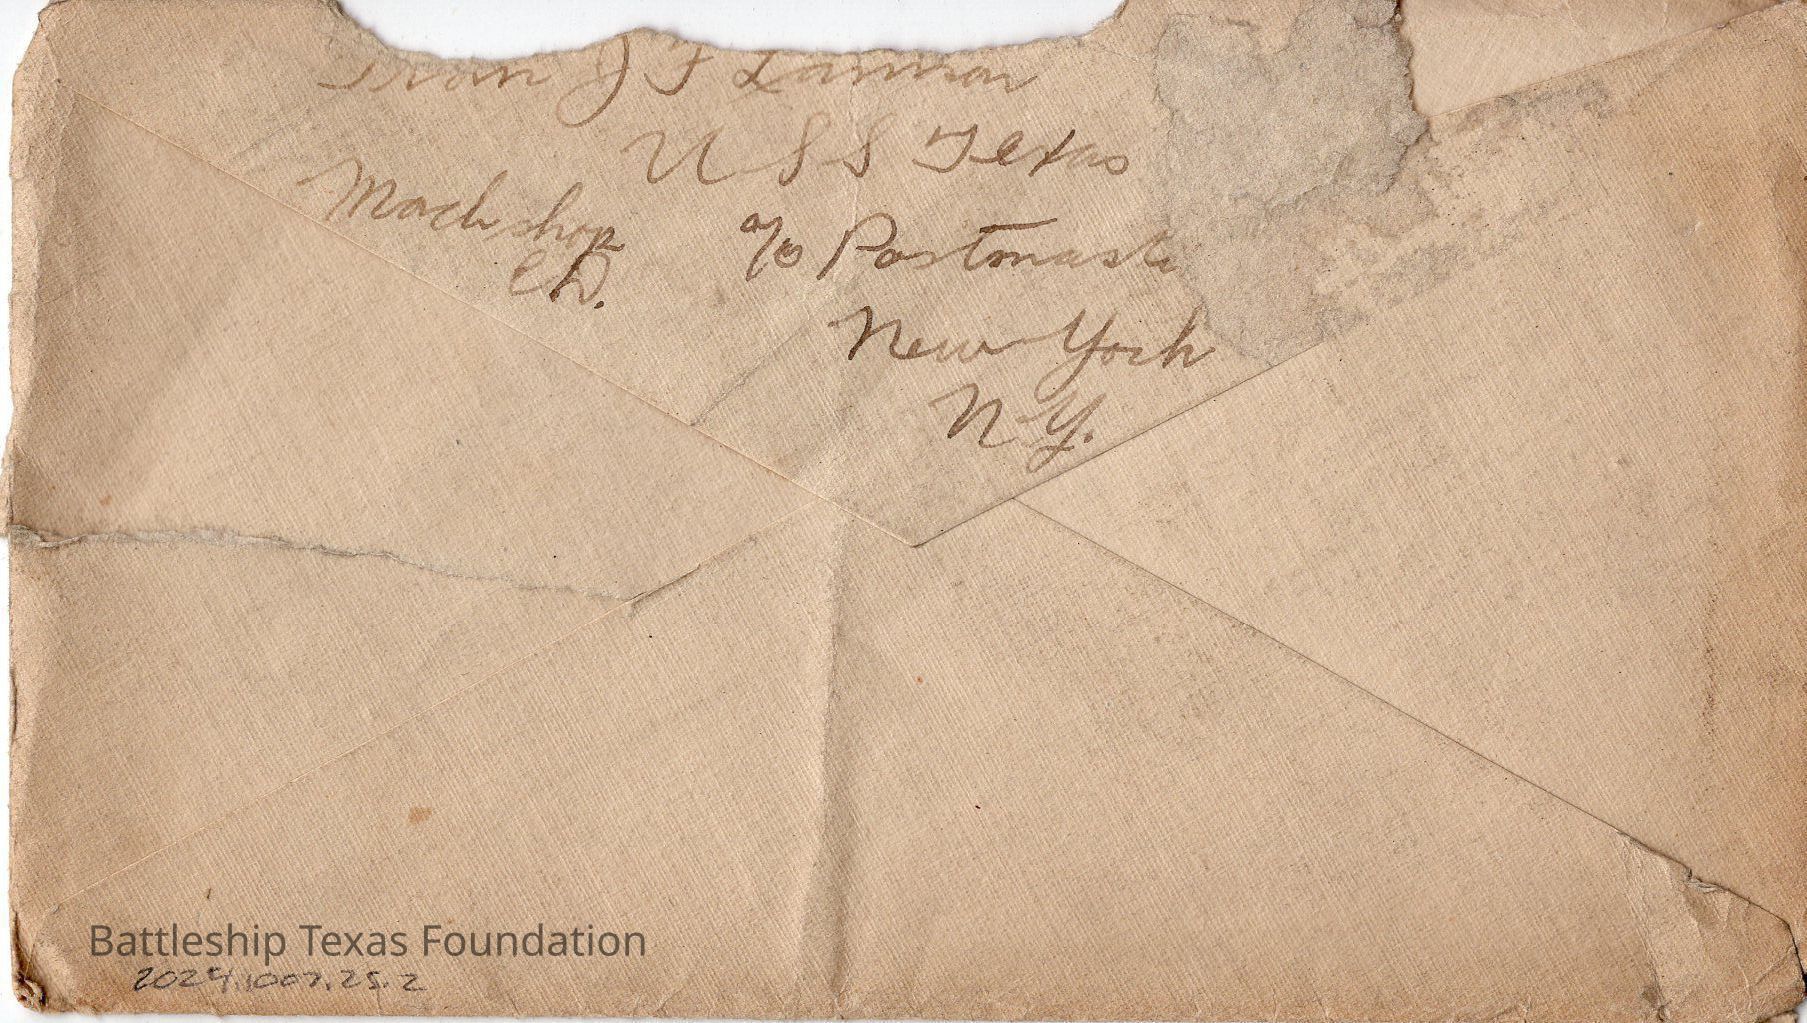 From J F Lammon
U S S Texas
Mach shop
c/o Postmaster
New York
N.Y.
Battleship Texas Foundation
2024.1007.25.2